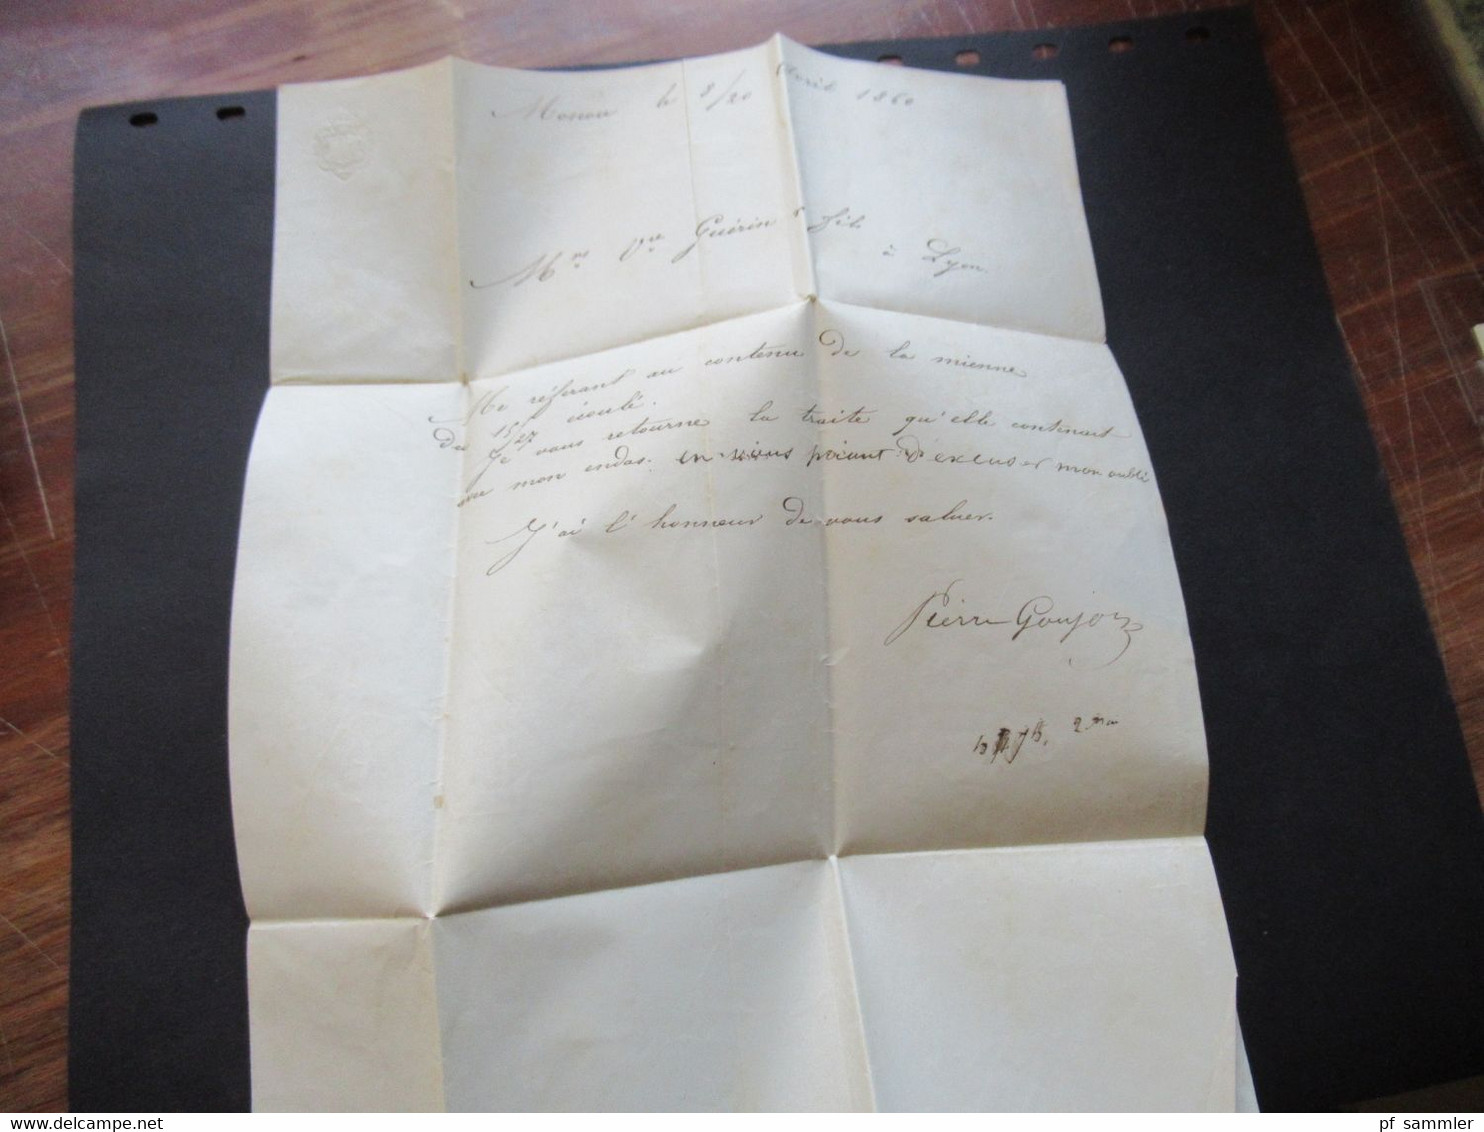 Moscou le 8/20 Avril 1860
Mrs Vve Guérin & fils
à Lyon
Me référant au contenu de la mienne
du 15/27 écoulé.
Je vous retourne la traite qu'elle contenait
mon endos. en vous priant d'excuser mon oubli
J'ai l'honneur de vous saluer.
Pierre Goujon
pf_sammler